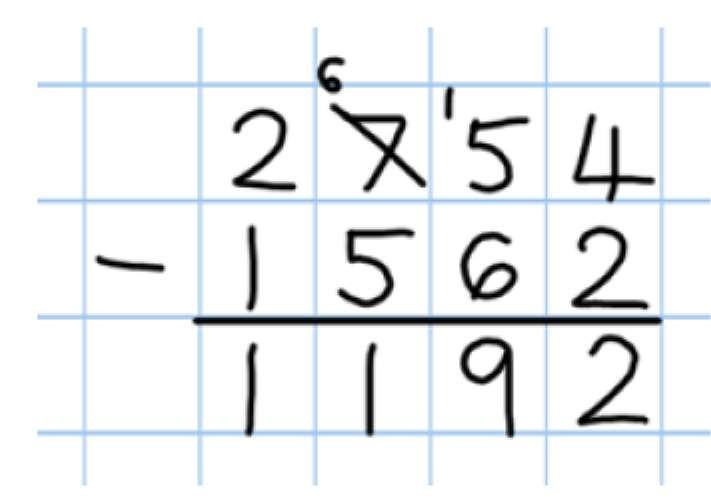 6
2 7 ¹5 4
- 1 5 6 2
1 1 9 2